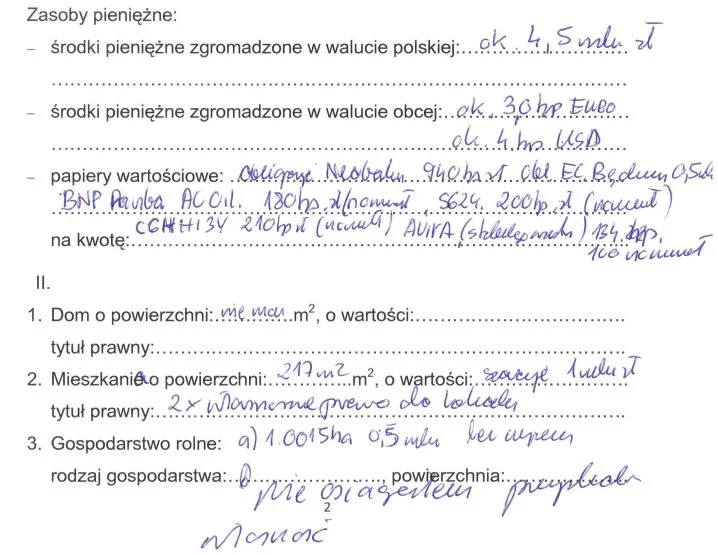 Zasoby pieniężne:
– środki pieniężne zgromadzone w walucie polskiej:...ok. 4,5 mln zł
– środki pieniężne zgromadzone w walucie obcej:..ok. 30 tys. Euro
ok. 4 tys. USD
– papiery wartościowe: 940 tys. zł. obl. EC Będzin 0,5
BNP 180 tys. zł/nominał, S624. 200 tys. zł (nominał)
na kwotę: 210 tys. zł (nominał) AVIVA 134 tys.
100 nominał
II.
1. Dom o powierzchni: nie mam m², o wartości:
tytuł prawny:
2. Mieszkania o powierzchni: 217 m2 m², o wartości: szacuję 1 mln zł
tytuł prawny: 2 x własnościowe prawo do lokalu
3. Gospodarstwo rolne: a) 1.0015 ha 0,5 mln bez
rodzaj gospodarstwa: powierzchnia:
nie osiągnąłem
2
własność